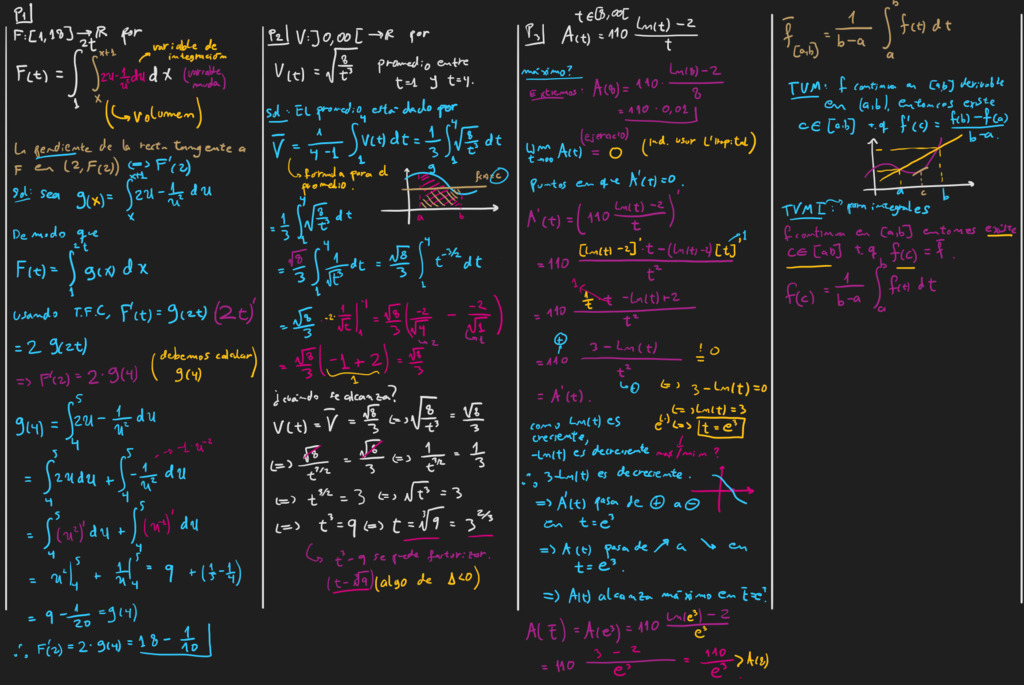 P1
F:[1,18] → ℝ por
F(t) = ∫_1^{2t} ∫_x^{x+1} 2u - 1/u² du dx
variable de integración
(variable muda)
(↪ volumen)
La pendiente de la recta tangente a
F en (2, F(2)) ⟺ F'(2)
Sol: sea g(x) = ∫_x^{x+1} 2u - 1/u² du
De modo que
F(t) = ∫_1^{2t} g(x) dx
usando T.F.C, F'(t) = g(2t) (2t)'
= 2 g(2t)
⇒ F'(2) = 2·g(4)
(debemos calcular g(4))
g(4) = ∫_4^5 2u - 1/u² du
→ -1·u^{-2}
= ∫_4^5 2u du + ∫_4^5 -1/u² du
= ∫_4^5 (u²)' du + ∫_4^5 (u^{-1})' du
= u²|_4^5 + 1/u|_4^5 = 9 + (1/5 - 1/4)
= 9 - 1/20 = g(4)
∴ F'(2) = 2·g(4) = 18 - 1/10
P2 V:]0,∞[ → ℝ por
V(t) = √(8/t³) promedio entre
t=1 y t=4.
Sol: El promedio está dado por
V̄ = 1/(4-1) ∫_1^4 V(t) dt = 1/3 ∫_1^4 √(8/t³) dt
↪ fórmula para el promedio.
= 1/3 ∫_1^4 √(8/t³) dt
a b
= √8/3 ∫_1^4 1/√t³ dt = √8/3 ∫_1^4 t^{-3/2} dt
= √8/3 · -2· 1/√t |_1^4 = √8/3 (-2/√4 - -2/√1)
= √8/3 (-1 + 2) = √8/3
1
¿cuándo se alcanza?
V(t) = V̄ = √8/3 ⟺ √(8/t³) = √8/3
⟺ √8/t^{3/2} = √8/3 ⟺ 1/t^{3/2} = 1/3
⟺ t^{3/2} = 3 ⟺ √t³ = 3
⟺ t³ = 9 ⟺ t = ∛9 = 3^{2/3}
↪ t³-9 se puede factorizar.
(t-∛9)(algo de Δ<0)
P3 t∈[8,∞[
A(t) = 110 (Ln(t) - 2)/t
máximo?
Extremos: A(8) = 110 · (Ln(8) - 2)/8
= 110 · 0,01
Lim_{t→∞} A(t) = 0 (ind. usar L'Hopital)
Puntos en que A'(t)=0.
A'(t) = (110 (Ln(t)-2)/t)'
= 110 ([Ln(t)-2]'·t - (Ln(t)-2)[t]')/t²
1
= 110 (1/t · t - Ln(t) + 2)/t²
= 110 (3 - Ln(t))/t² =! 0
= A'(t).
⟺ 3 - Ln(t) = 0
⟺ Ln(t) = 3
e^(·) ⟺ t = e³
max/min?
como Ln(t) es
creciente,
-Ln(t) es decreciente
∴ 3-Ln(t) es decreciente.
⇒ A'(t) pasa de ⊕ a ⊖
en t=e³
⇒ A(t) pasa de ↗ a ↘ en
t=e³.
⇒ A(t) alcanza máximo en t̄=e³.
A(t̄) = A(e³) = 110 (Ln(e³) - 2)/e³
= 110 (3 - 2)/e³ = 110/e³ > A(8)
f̄_[a,b] = 1/(b-a) ∫_a^b f(t) dt
TVM: f continua en [a,b] derivable
en (a,b), entonces existe
c∈[a,b] t.q f'(c) = (f(b)-f(a))/(b-a)
a c b
TVM I: → para integrales
f continua en [a,b] entonces existe
c∈[a,b] t.q. f(c) = f̄.
f(c) = 1/(b-a) ∫_a^b f(t) dt